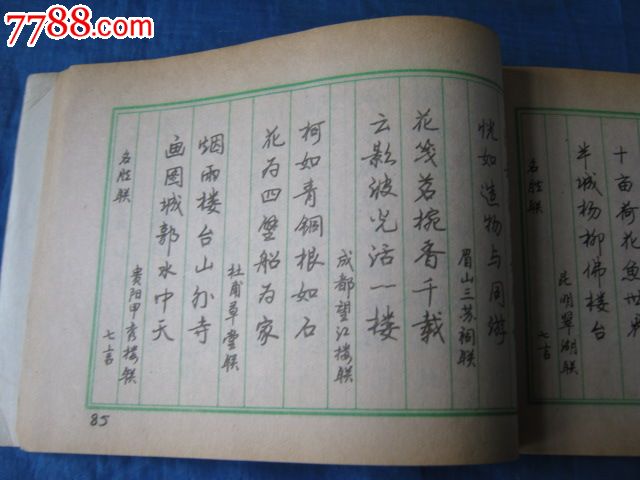 7788.com
十亩荷花鱼世界
半城杨柳佛楼台
昆明翠湖联
名胜联
七言
恍如造物与同游
眉山三苏祠联
花笺茗椀香千载
云影波光活一楼
成都望江楼联
柯如青铜根如石
花为四壁船为家
杜甫草堂联
烟雨楼台山外寺
画图城郭水中天
贵阳甲秀楼联
名胜联
七言
85